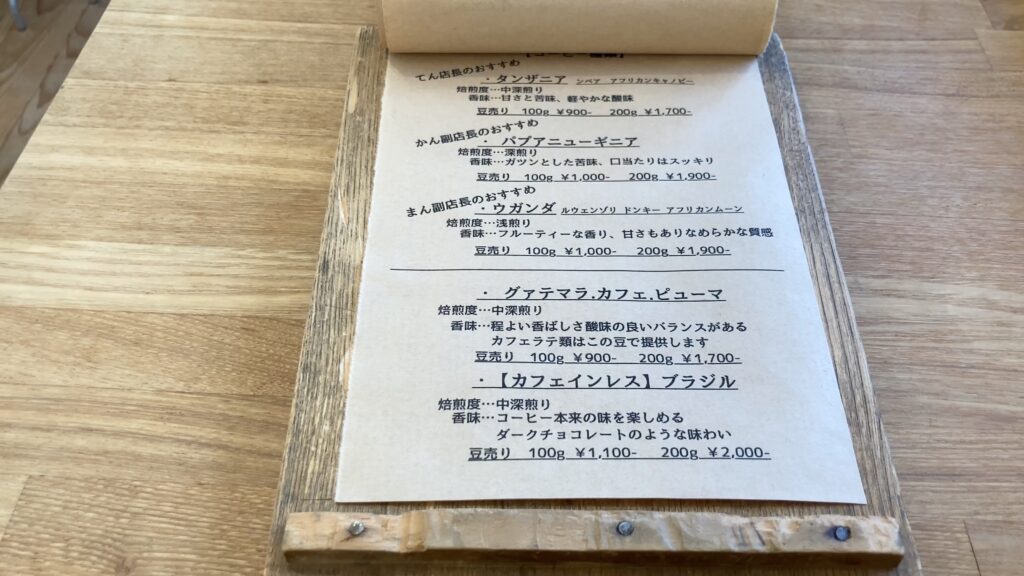 てん店長のおすすめ
・タンザニア ンベア アフリカンキャノピー
焙煎度…中深煎り
香味…甘さと苦味、軽やかな酸味
豆売り 100g ¥900- 200g ¥1,700-
かん副店長のおすすめ
・ パプアニューギニア
焙煎度…深煎り
香味…ガツンとした苦味、口当たりはスッキリ
豆売り 100g ¥1,000- 200g ¥1,900-
まん副店長のおすすめ
・ウガンダ ルウェンゾリ ドンキー アフリカンムーン
焙煎度…浅煎り
香味…フルーティーな香り、甘さもありなめらかな質感
豆売り 100g ¥1,000- 200g ¥1,900-
・ グァテマラ.カフェ.ピューマ
焙煎度…中深煎り
香味…程よい香ばしさ酸味の良いバランスがある
カフェラテ類はこの豆で提供します
豆売り 100g ¥900- 200g ¥1,700-
・【カフェインレス】ブラジル
焙煎度…中深煎り
香味…コーヒー本来の味を楽しめる
ダークチョコレートのような味わい
豆売り 100g ¥1,100- 200g ¥2,000-